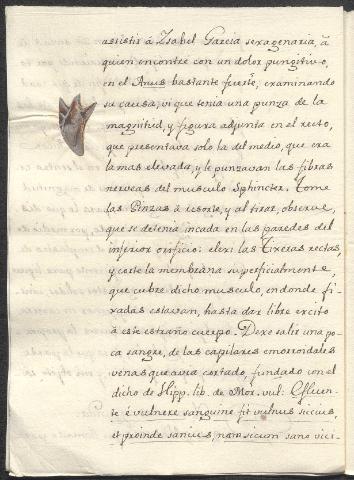 assistir á Ysabel Garcia sexagenaria, á
quien encontre con un dolor pungitivo,
en el Anus bastante fuerte, examinando
su causa, vi que tenia una punza de la
magnitud, y figura adjunta en el recto,
que presentava solo la del medio, que era
la mas elevada, y le punzavan las fibras
nerveas del musculo Sphincter. Tome
las Pinzas á resorte, y al tirar, observe,
que se detenia incada en las paredes del
inferior orificio: elexi las Tixeras rectas,
y corte la membrana superficialmente,
que cubre dicho musculo, en donde fi-
xadas estavan, hasta dar libre exito
á este estraño cuerpo. Dexe salir una po-
ca sangre, de las capilares emorroidales
venas que avia cortado, fundado con el
dicho de Hipp. lib. de Mor. vul: Efluen-
te é vulnere sanguine fit vulnus siccius,
et proinde sanius, nam siccum sano vici-